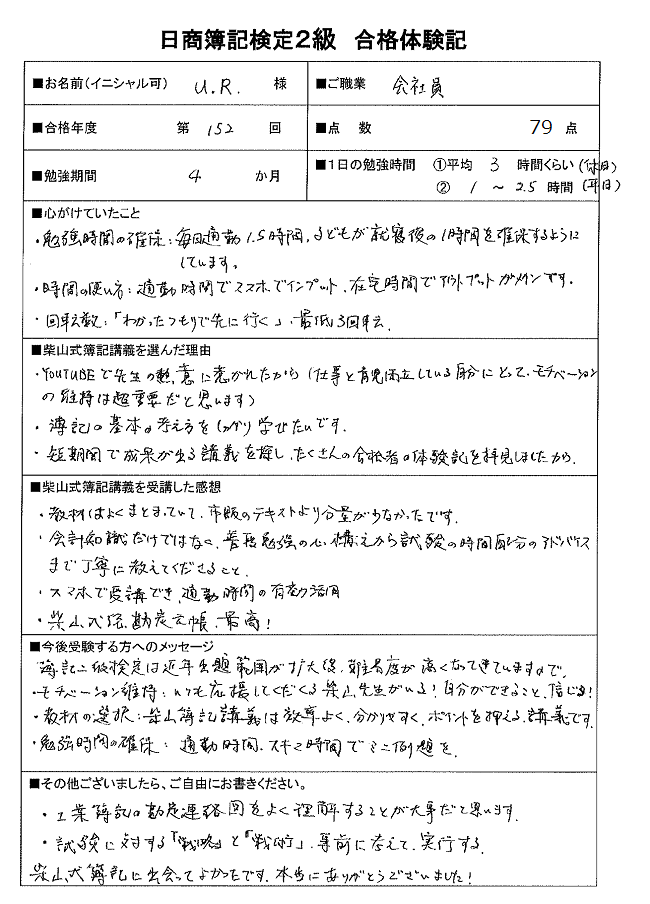 日商簿記検定2級 合格体験記
■お名前(イニシャル可) U.R. 様 ■ご職業 会社員
■合格年度 第 152 回 ■点 数 79 点
■勉強期間 4 か月 ■1日の勉強時間 ①平均 3 時間くらい(休日)
② 1 ～ 2.5 時間 (平日)
■心がけていたこと
・勉強時間の確保:毎日通勤1.5時間、子どもが就寝後の1時間を確保するように
しています。
・時間の使い方:通勤時間でスマホでインプット、在宅時間でアウトプットがメインです。
・回転数:「わかったつもりで先に行く」、最低3回転
■柴山式簿記講義を選んだ理由
・YOUTUBEで先生の熱意に惹かれたから(仕事と育児両立している自分にとって、モチベーション
の維持は超重要だと思います)
・簿記の基本の考え方をしっかり学びたいです。
・短期間で成果が出る講義を探し、たくさんの合格者の体験記を拝見しましたから。
■柴山式簿記講義を受講した感想
・教材はよくまとまっていて、市販のテキストより分量が少なかったです。
・会計知識だけではなく、普段勉強の心構えから試験の時間配分のアドバイス
まで丁寧に教えてくださること。
・スマホで受講でき、通勤時間の有効活用
・柴山式総勘定元帳、最高!
■今後受験する方へのメッセージ
簿記二級検定は近年出題範囲が拡大後、難易度が高くなってきていますので、
・モチベーション維持:いつも応援してくだくる柴山先生がいる!自分ができること、信じる!
・教材の選択:柴山簿記講義は効率よく、分かりやすく、ポイントを押える講義です。
・勉強時間の確保:通勤時間、スキマ時間でミニ例題を。
■その他ございましたら、ご自由にお書きください。
・工業簿記の勘定連絡図をよく理解することが大事だと思います。
・試験に対する「戦略」と「戦術」、事前に考えて、実行する。
柴山式簿記に出会ってよかったです。本当にありがとうございました!